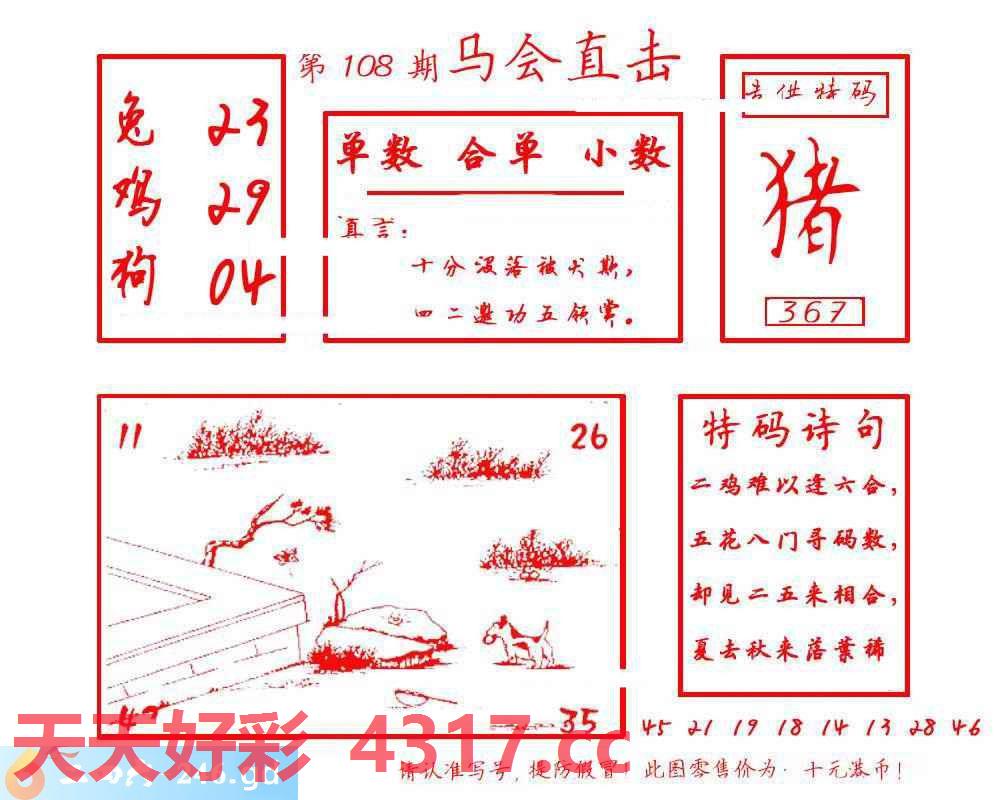 第 108 期 马会直击
兔 23
鸡 29
狗 04
单数 合单 小数
真言：
十分没落被犬欺，
四二邀功五领赏。
特码
猪
367
11
26
35
特码诗句
二鸡难以逢六合，
五花八门寻码数，
却见二五来相合，
夏去秋来落葉稀
45 21 19 18 14 13 28 46
天天好彩 4317.cc
246.gd
请认准写号，提防假冒！此图零售价为：十元港币！